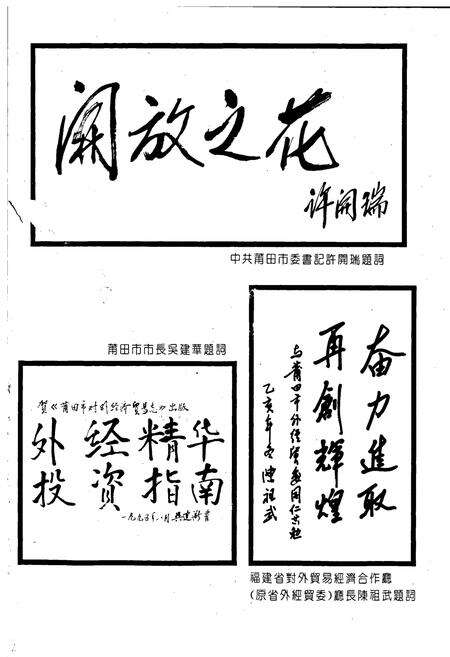 開放之花
许開瑞
中共莆田市委書記許開瑞題詞
莆田市市長吳建華題詞
贺《莆田市对外经济贸易志》出版
外经精华
投资指南
一九九五年八月
奋力進取
再創輝煌
与莆田市外经贸委同仁共勉
乙亥年冬 陳祖武
福建省對外貿易經濟合作廳
(原省外經貿委)廳長陳祖武題詞